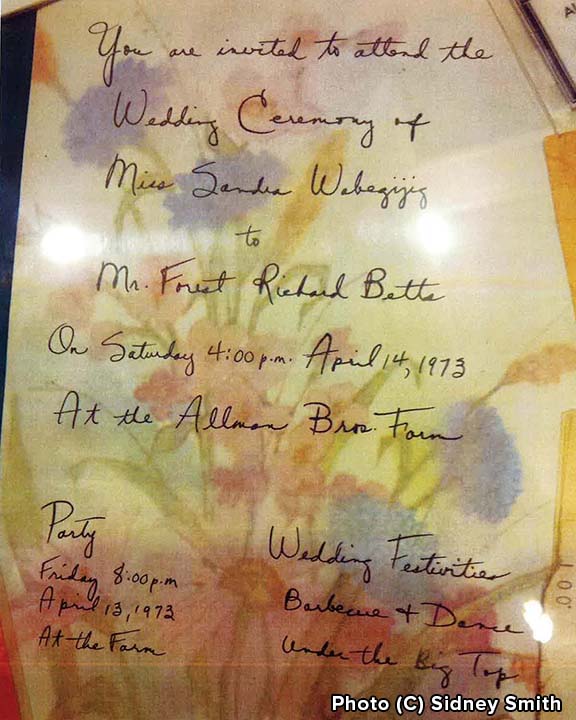 You are invited to attend the
Wedding Ceremony of
Miss Sandra Wabegijig
to
Mr. Forest Richard Betts
On Saturday 4:00 p.m. April 14, 1973
At the Allman Bros. Farm
Party
Friday 8:00 p.m
April 13, 1973
At the Farm
Wedding Festivities
Barbecue + Dance
Under the Big Top
.001
Photo (C) Sidney Smith